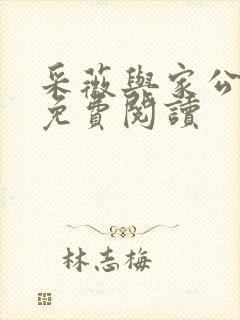 采薇與家公
免費閱讀
林志梅